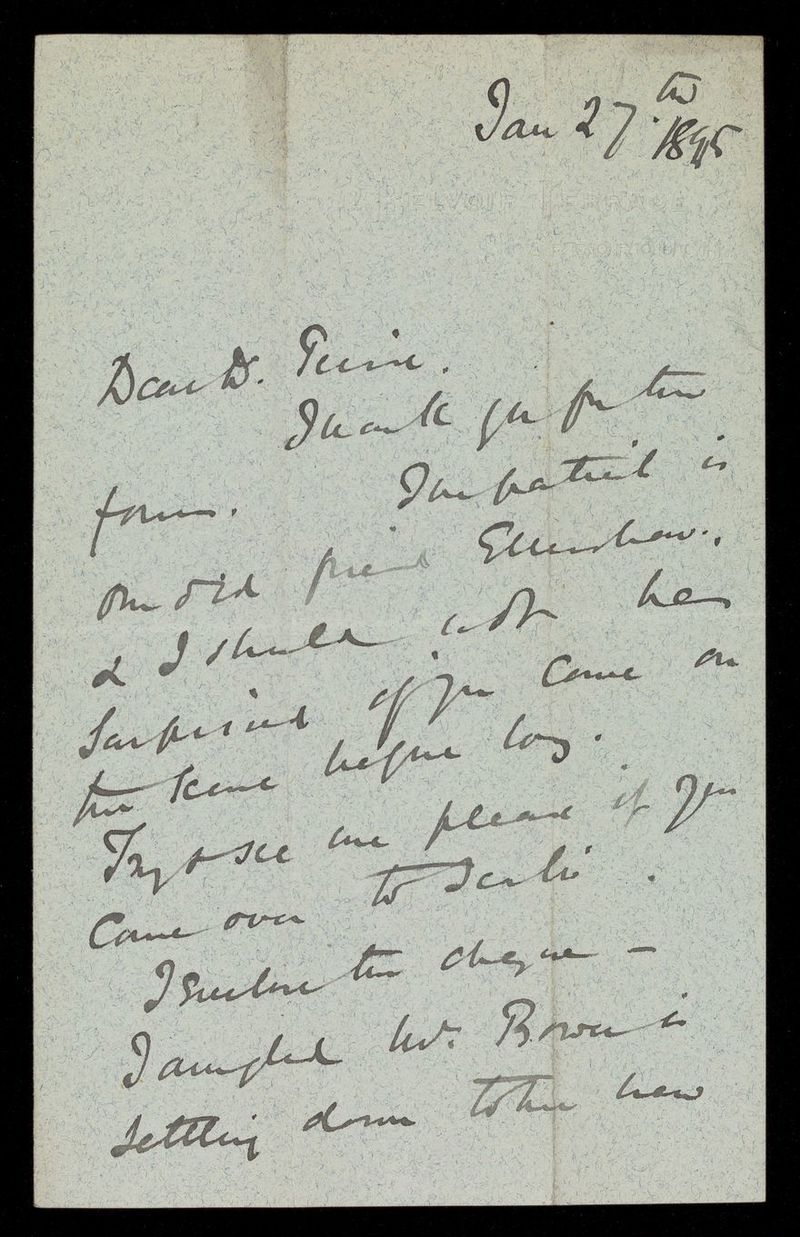 Jan 27th
1895
2 Belvoir Terrace
Scarborough
Dear Dr.
Thank you for the
forms. The patient is
our old friend Ellershaw.
& I should not be
surprised if you come on
the scene before long.
Try & see me please if you
come over to Scarbro.
I enclose the cheque –
I am glad Mr. Bower is
settling down to his new